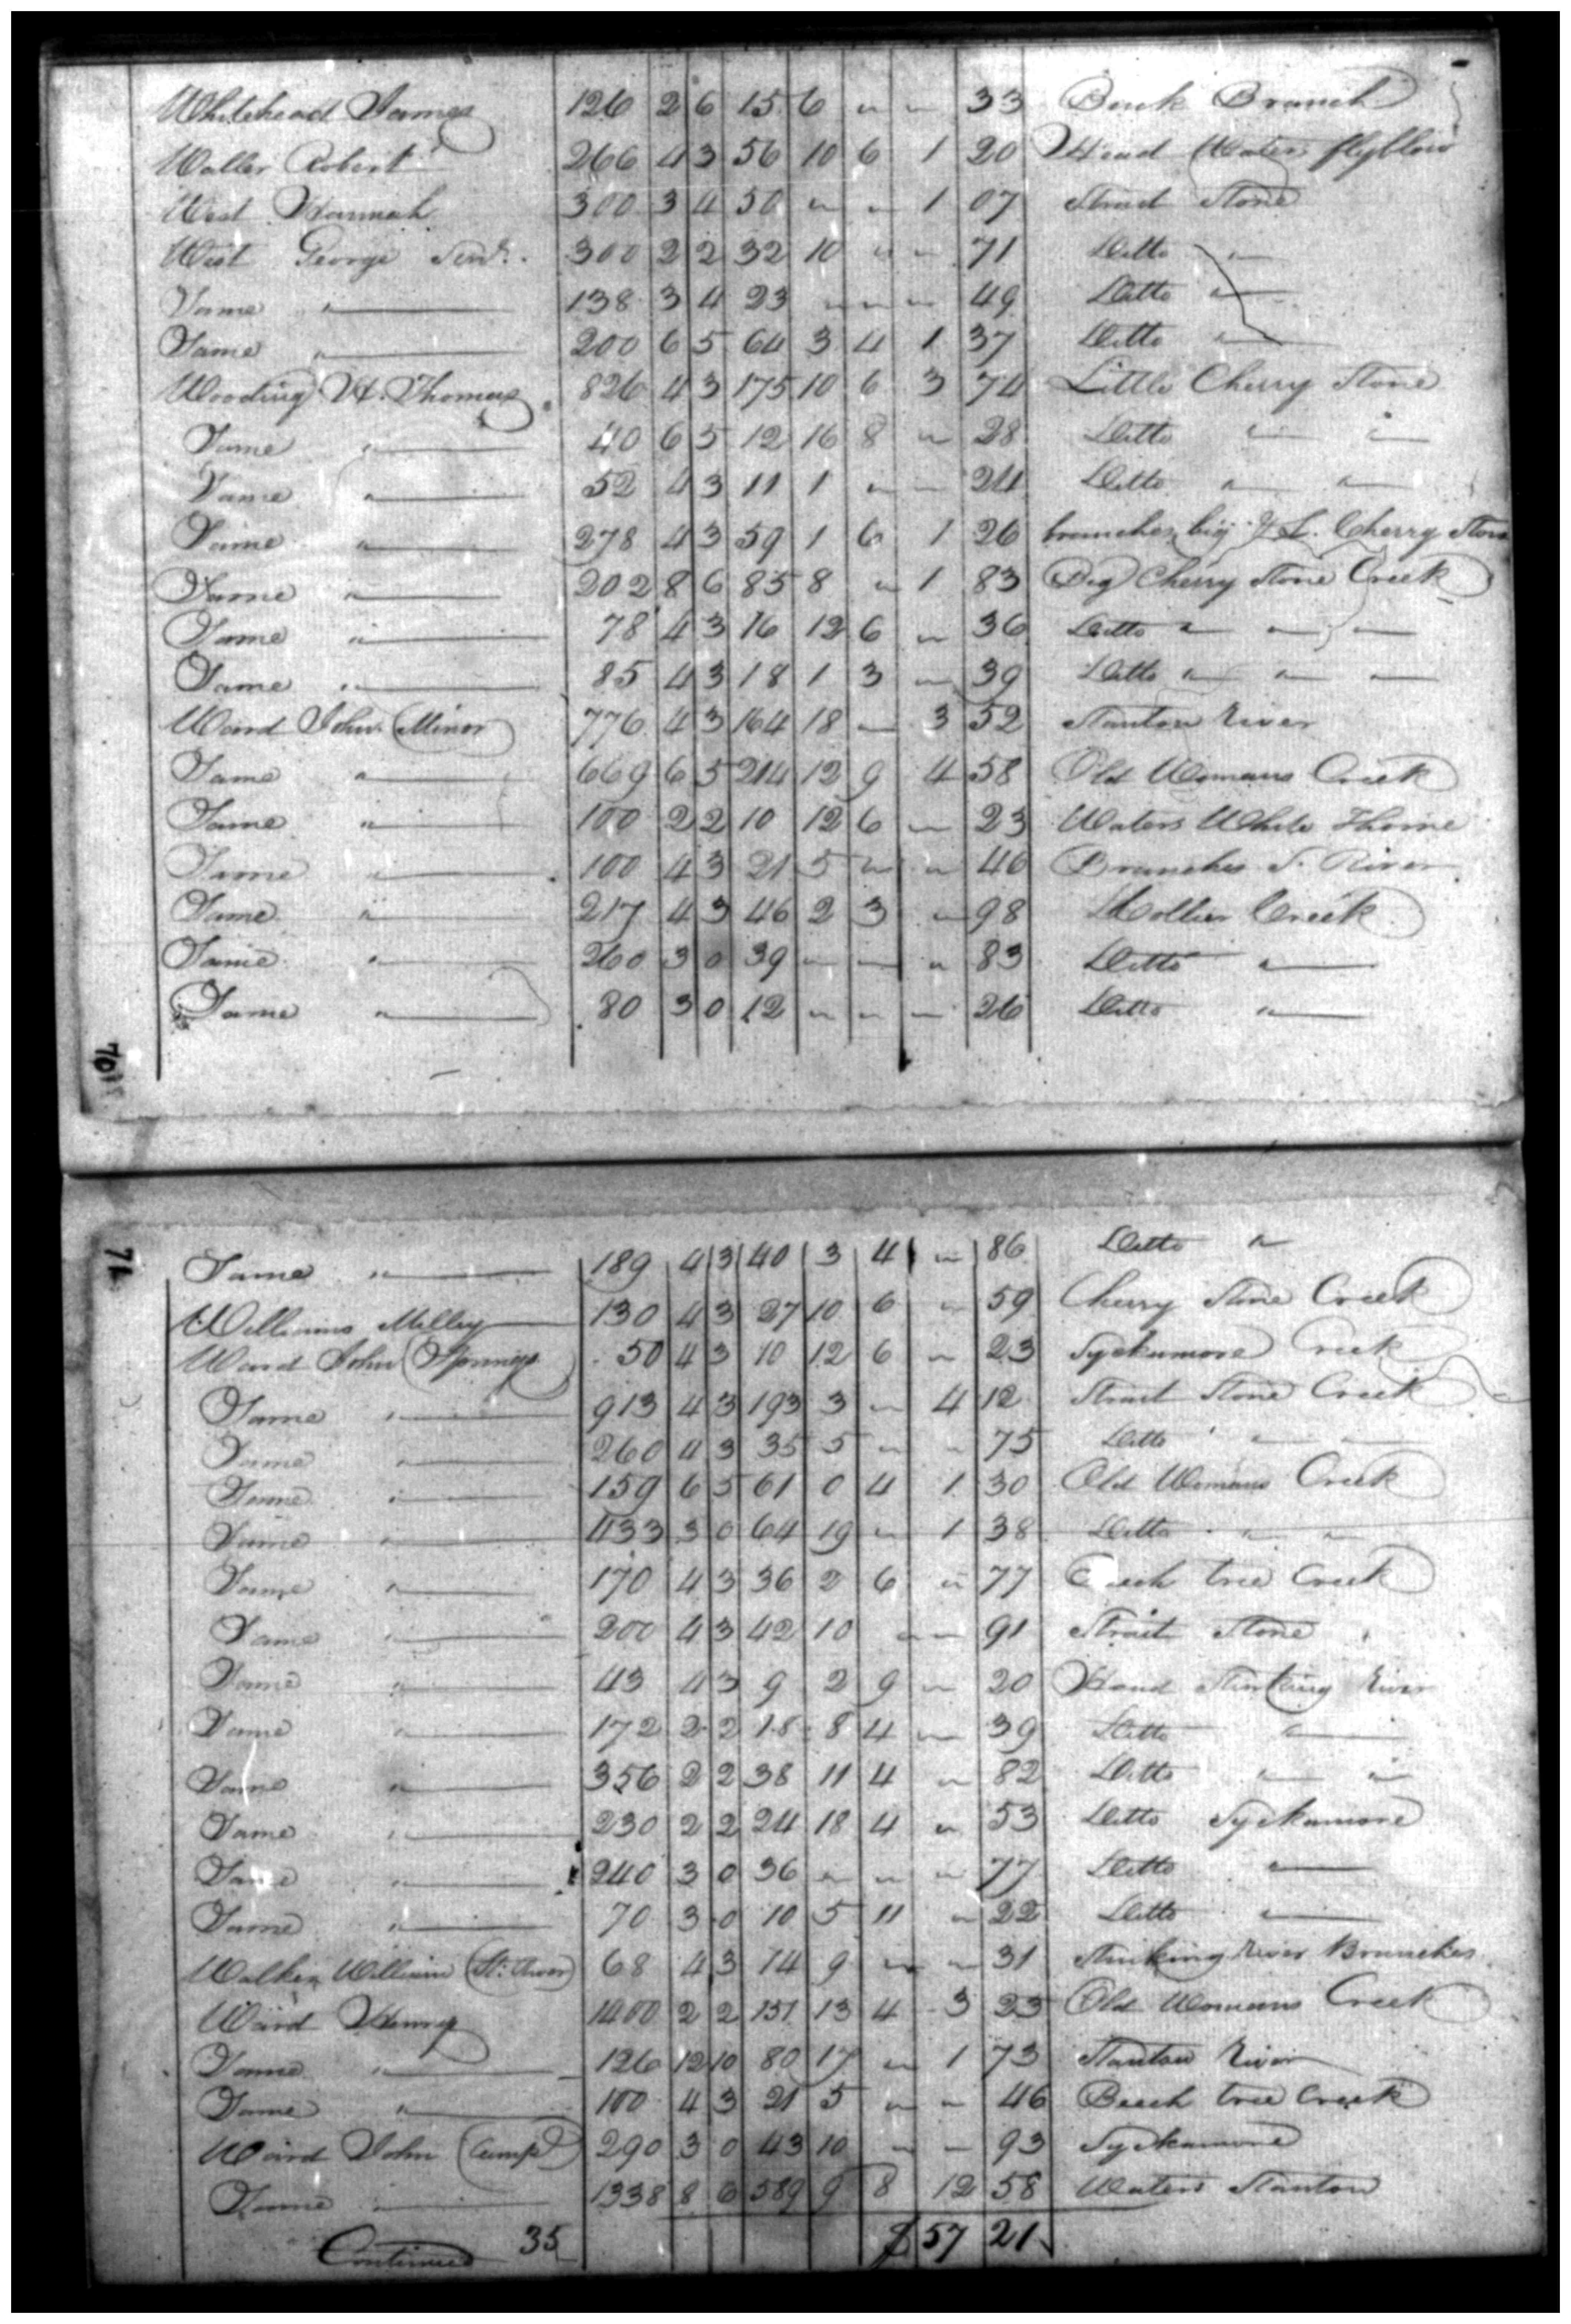 Whitehead James 126 2 6 15 6 " " 33 Buck Branch
Waller Robert 266 4 3 56 10 6 1 20 Head Waters flyblow
West Hannah 300 3 4 50 " " 1 07 Strait Stone
West George Senr. 300 2 2 32 10 " " 71 Ditto "
Same " 138 3 4 23 " " " 49 Ditto "
Same " 200 6 5 64 3 4 1 37 Ditto "
Wooding H. Thomas 826 4 3 175 10 6 3 74 Little Cherry Stone
Same " 40 6 5 12 16 8 " 28 Ditto " "
Same " 52 4 3 11 1 " " 24 Ditto " "
Same " 278 4 3 59 1 6 1 26 branches big & L. Cherry Stone
Same " 202 8 6 85 8 " 1 83 Big Cherry Stone Creek
Same " 78 4 3 16 12 6 " 36 Ditto " " "
Same " 85 4 3 18 1 3 " 39 Ditto " " "
Ward John (Minor) 776 4 3 164 18 " 3 52 Stanton River
Same " 669 6 5 214 12 9 4 58 Old Womans Creek
Same " 100 2 2 10 12 6 " 23 Waters White Thorne
Same " 100 4 3 21 5 " " 46 Branches S. River
Same " 217 4 3 46 2 3 " 98 Creek
Same " 260 3 0 39 " " " 83 Ditto "
Same " 80 3 0 12 " " " 26 Ditto "
70
71
Same " 189 4 3 40 3 4 " 86 Ditto "
Williams Milley 130 4 3 27 10 6 " 59 Cherry Stone Creek
Ward John (Springs) 50 4 3 10 12 6 " 23 Syckamore Creek
Same " 913 4 3 193 3 " 4 12 Strait Stone Creek
Same " 260 4 3 35 5 " " 75 Ditto " "
Same " 159 6 5 61 0 4 1 30 Old Womans Creek
Same " 433 3 0 64 19 " 1 38 Ditto " "
Same " 170 4 3 36 2 6 " 77 Beech tree Creek
Same " 200 4 3 42 10 " " 91 Strait Stone
Same " 43 4 3 9 2 9 " 20 Head Stinking River
Same " 172 2 2 18 8 4 " 39 Ditto "
Same " 356 2 2 38 11 4 " 82 Ditto " "
Same " 230 2 2 24 18 4 " 53 Ditto Syckamore
Same " 240 3 0 36 " " " 77 Ditto "
Same " 70 3 0 10 5 11 " 22 Ditto "
Walker William (St. River) 68 4 3 14 9 " " 31 Stinking River Branches
Ward Henry 1400 2 2 151 13 4 3 23 Old Womans Creek
Same " 126 12 10 80 17 " 1 73 Stanton River
Same " 100 4 3 21 5 " " 46 Beech tree Creek
Ward John (Camp) 290 3 0 43 10 " " 93 Syckamore
Same " 1338 8 6 589 9 8 12 58 Waters Stanton
Continued 35 $ 57 21